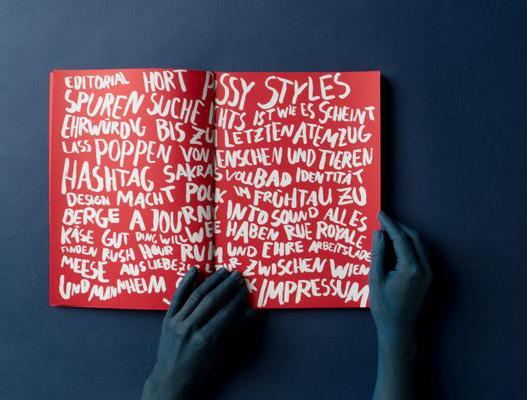 EDITORIAL HORT PUSSY STYLES
SPUREN SUCHE NICHTS IST WIE ES SCHEINT
EHRWÜRDIG BIS ZUM LETZTEN ATEMZUG
LASS POPPEN VON MENSCHEN UND TIEREN
HASHTAG SAKRAL VOLLBAD IDENTITÄT
DESIGN MACHT IM FRÜHTAU ZU
BERGE A JOURNEY INTO SOUND ALLES
KÄSE GUT DING WILL WEILE HABEN RUE ROYALE
FINDEN RUSH HOUR RUHM UND EHRE ARBEITSLADEN
MEESE AUS LIEBE ZUR ZWISCHEN WIEN
UND MANNHEIM IMPRESSUM